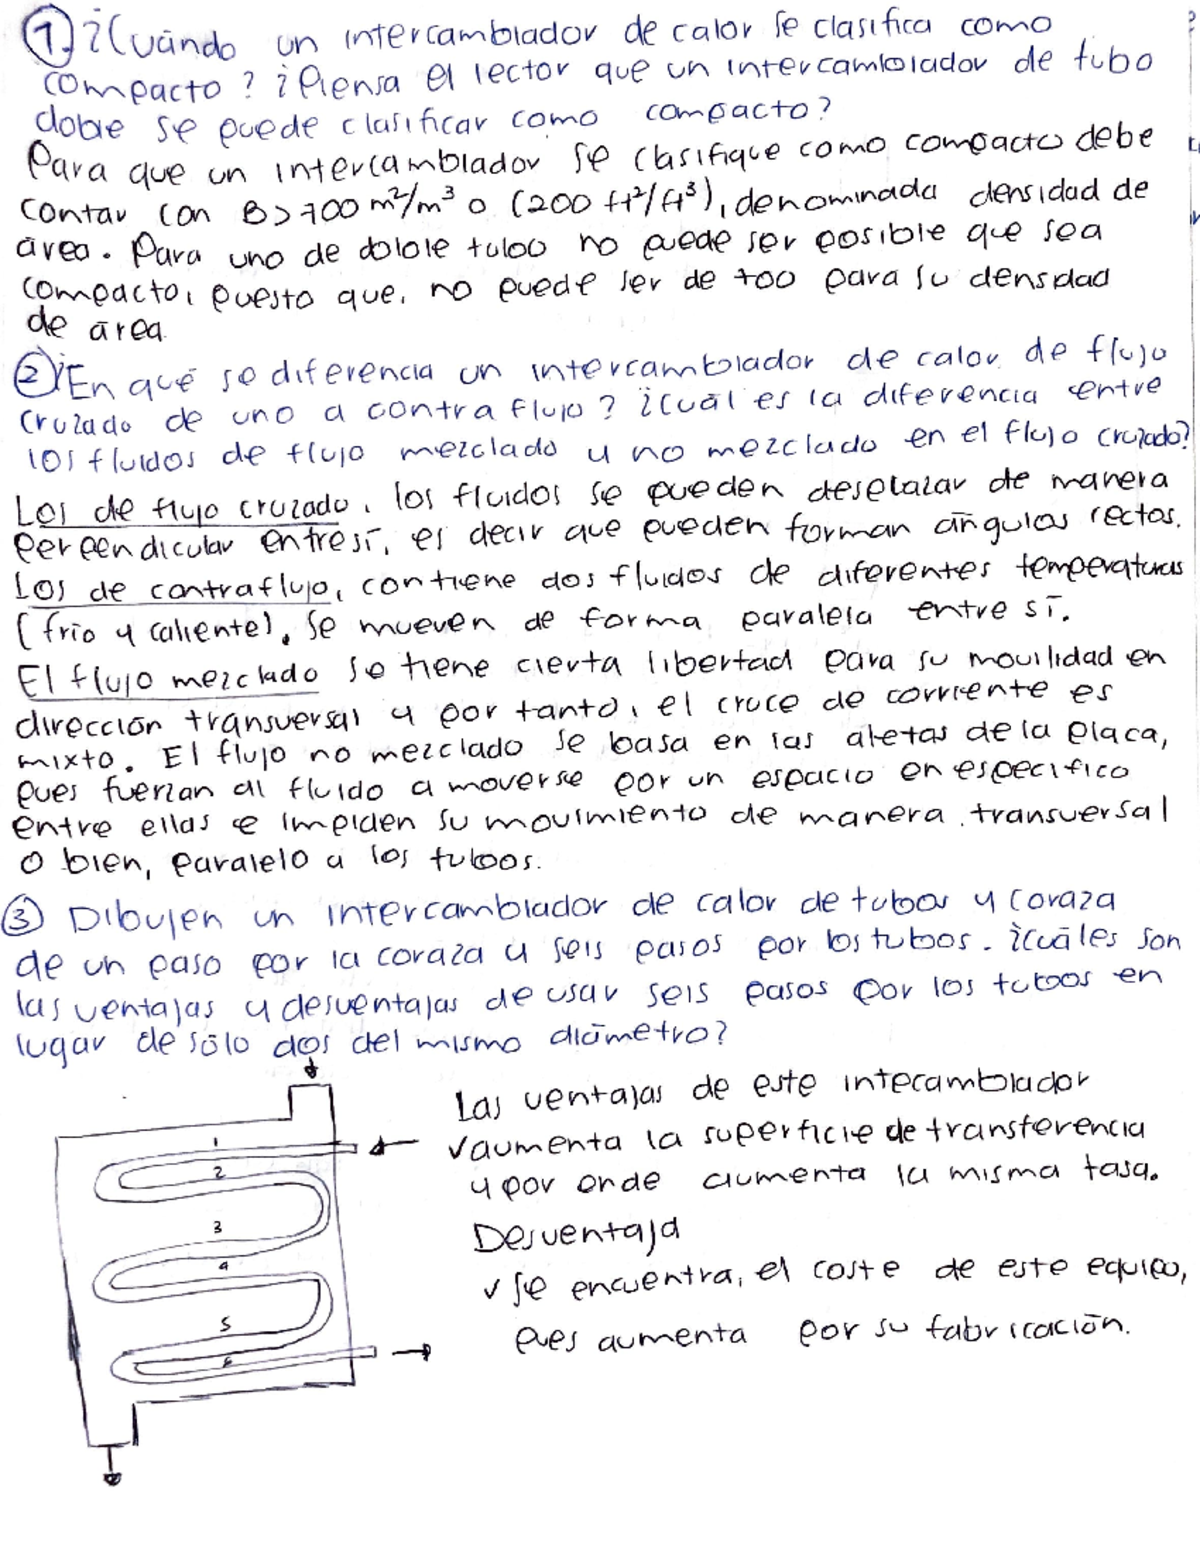 1. ¿Cuándo un intercambiador de calor se clasifica como
compacto? ¿Piensa el lector que un intercambiador de tubo
doble se puede clasificar como compacto?
Para que un intercambiador se clasifique como compacto debe
contar con B>700 m²/m³ o (200 ft²/ft³), denominada densidad de
área. Para uno de doble tubo no puede ser posible que sea
compacto, puesto que, no puede ser de 700 para su densidad
de área.
2 ¿En qué se diferencia un intercambiador de calor de flujo
cruzado de uno a contra flujo? ¿Cuál es la diferencia entre
los fluidos de flujo mezclado y no mezclado en el flujo cruzado?
Los de flujo cruzado, los fluidos se pueden desplazar de manera
perpendicular entre sí, es decir que pueden forman ángulos rectos.
Los de contraflujo, contiene dos fluidos de diferentes temperaturas
(frío y caliente), se mueven de forma paralela entre sí.
El flujo mezclado se tiene cierta libertad para su movilidad en
dirección transversal y por tanto, el cruce de corriente es
mixto. El flujo no mezclado se basa en las aletas de la placa,
pues fuerzan al fluido a moverse por un espacio en especifico
entre ellas e impiden su movimiento de manera transversal
o bien, paralelo a los tubos.
3 Dibujen un intercambiador de calor de tubos y coraza
de un paso por la coraza y seis pasos por los tubos. ¿Cuáles son
las ventajas y desventajas de usar seis pasos por los tubos en
lugar de sólo dos del mismo diámetro?
Las ventajas de este intecambiador
✓aumenta la superficie de transferencia
y por ende aumenta la misma tasa.
Desventaja
✓ Se encuentra, el coste de este equipo,
pues aumenta por su fabricación.
1
2
3
4
5
6